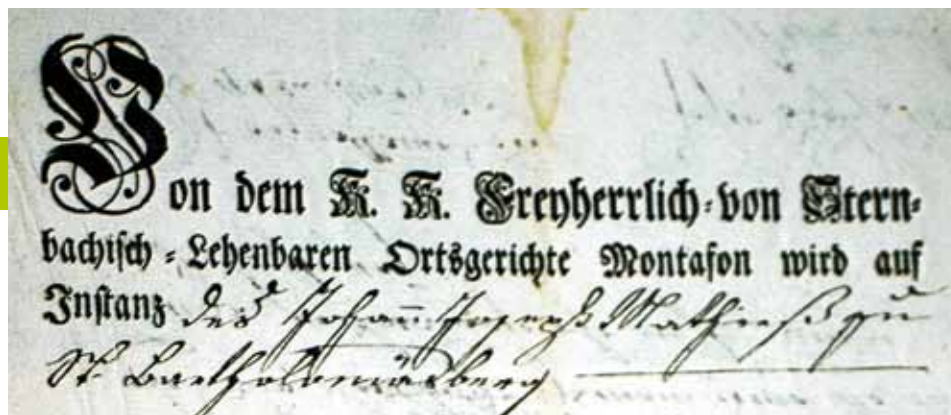 Von dem K. K. Freyherrlich-von Stern-
bachisch-Lehenbaren Ortsgerichte Montafon wird auf
Instanz des Johann Joseph Mathieß zu
St. Bartholomäusberg